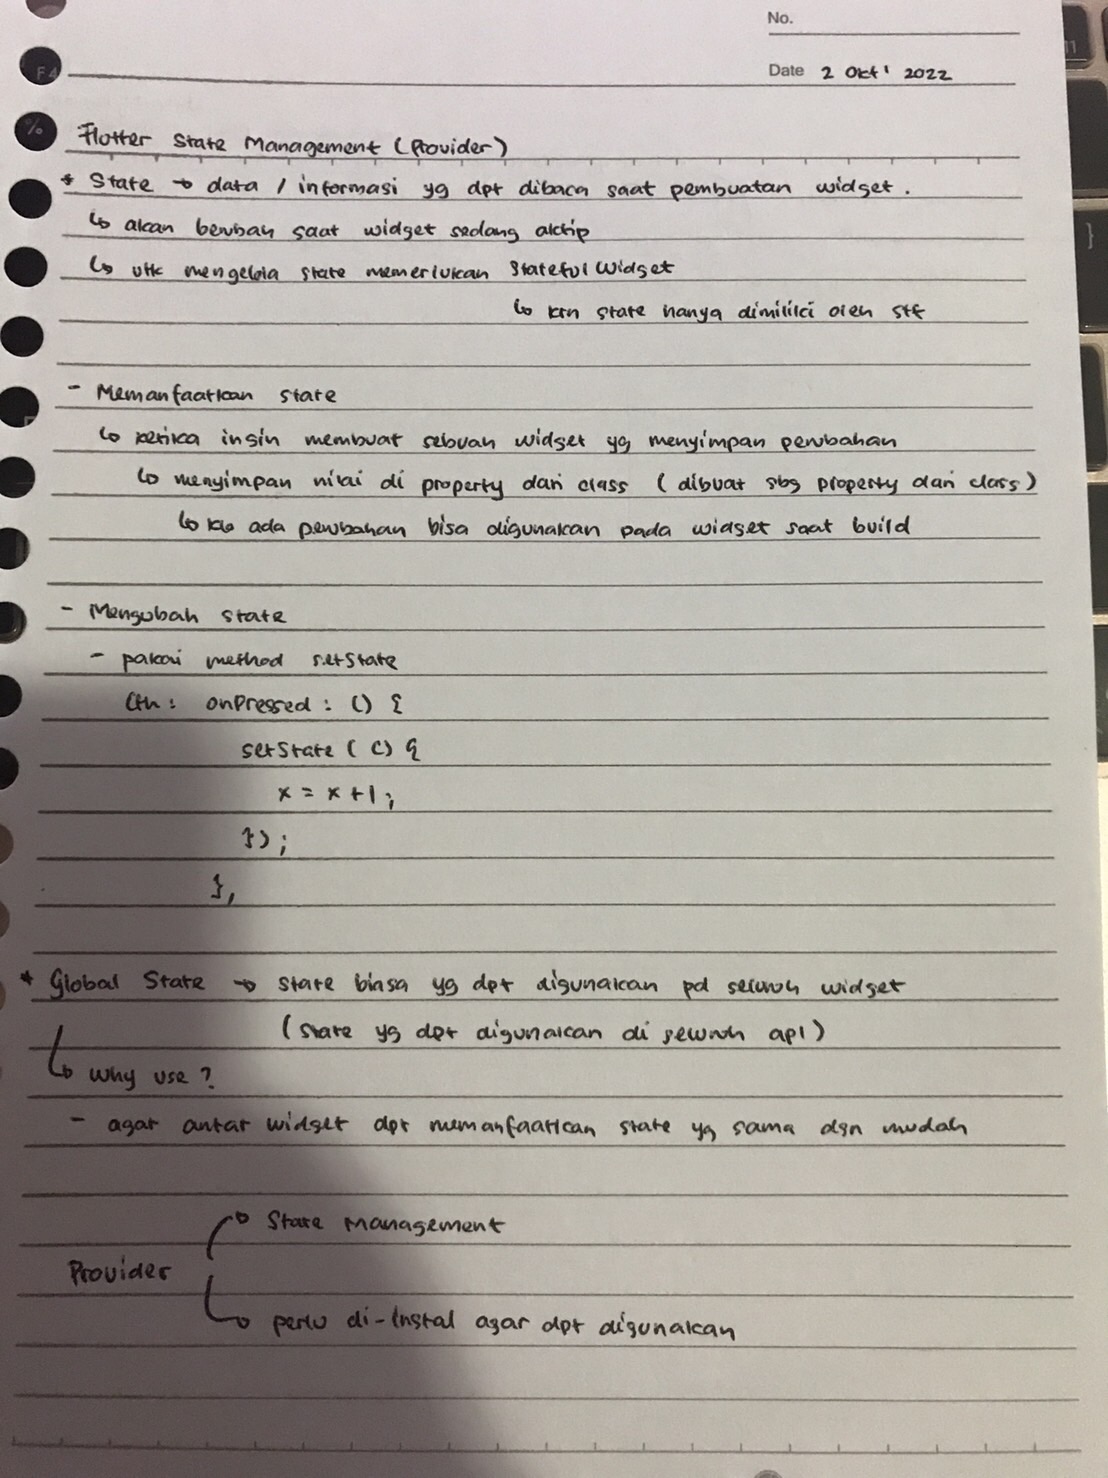 No.
Date 2 Okt' 2022
Flutter State Management (Provider)
* State → data / informasi yg dpt dibaca saat pembuatan widget.
↳ akan berubah saat widget sedang aktip
↳ utk mengelola state memerlukan StatefulWidget
↳ krn state hanya dimiliki oleh stf
- Memanfaatkan state
↳ ketika ingin membuat sebuah widget yg menyimpan perubahan
↳ menyimpan nilai di property dari class (dibuat sbg property dari class)
↳ klo ada perubahan bisa digunakan pada widget saat build
- Mengubah state
- pakai method setState
Cth : onPressed : () {
setState ( () {
x = x + 1 ;
}) ;
},
* Global State → state biasa yg dpt digunakan pd seluruh widget
(state yg dpt digunakan di seluruh apl)
↳ why use ?
- agar antar widget dpt memanfaatkan state yg sama dgn mudah
→ State Management
Provider
→ perlu di-instal agar dpt digunakan